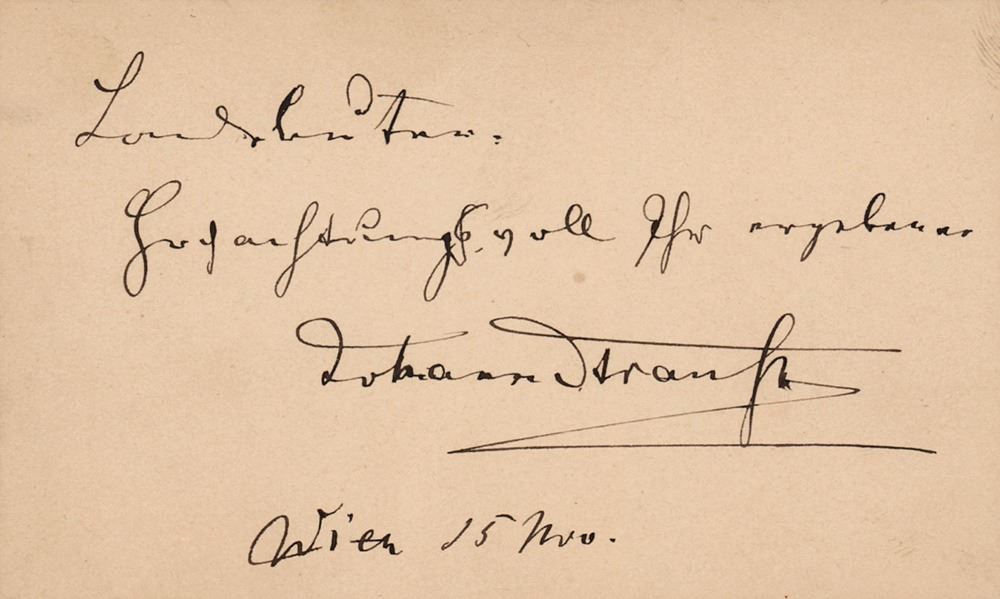 Landsleuten.
Hochachtungsvoll Ihr ergebener
Johann Strauß
Wien 15 Nov.